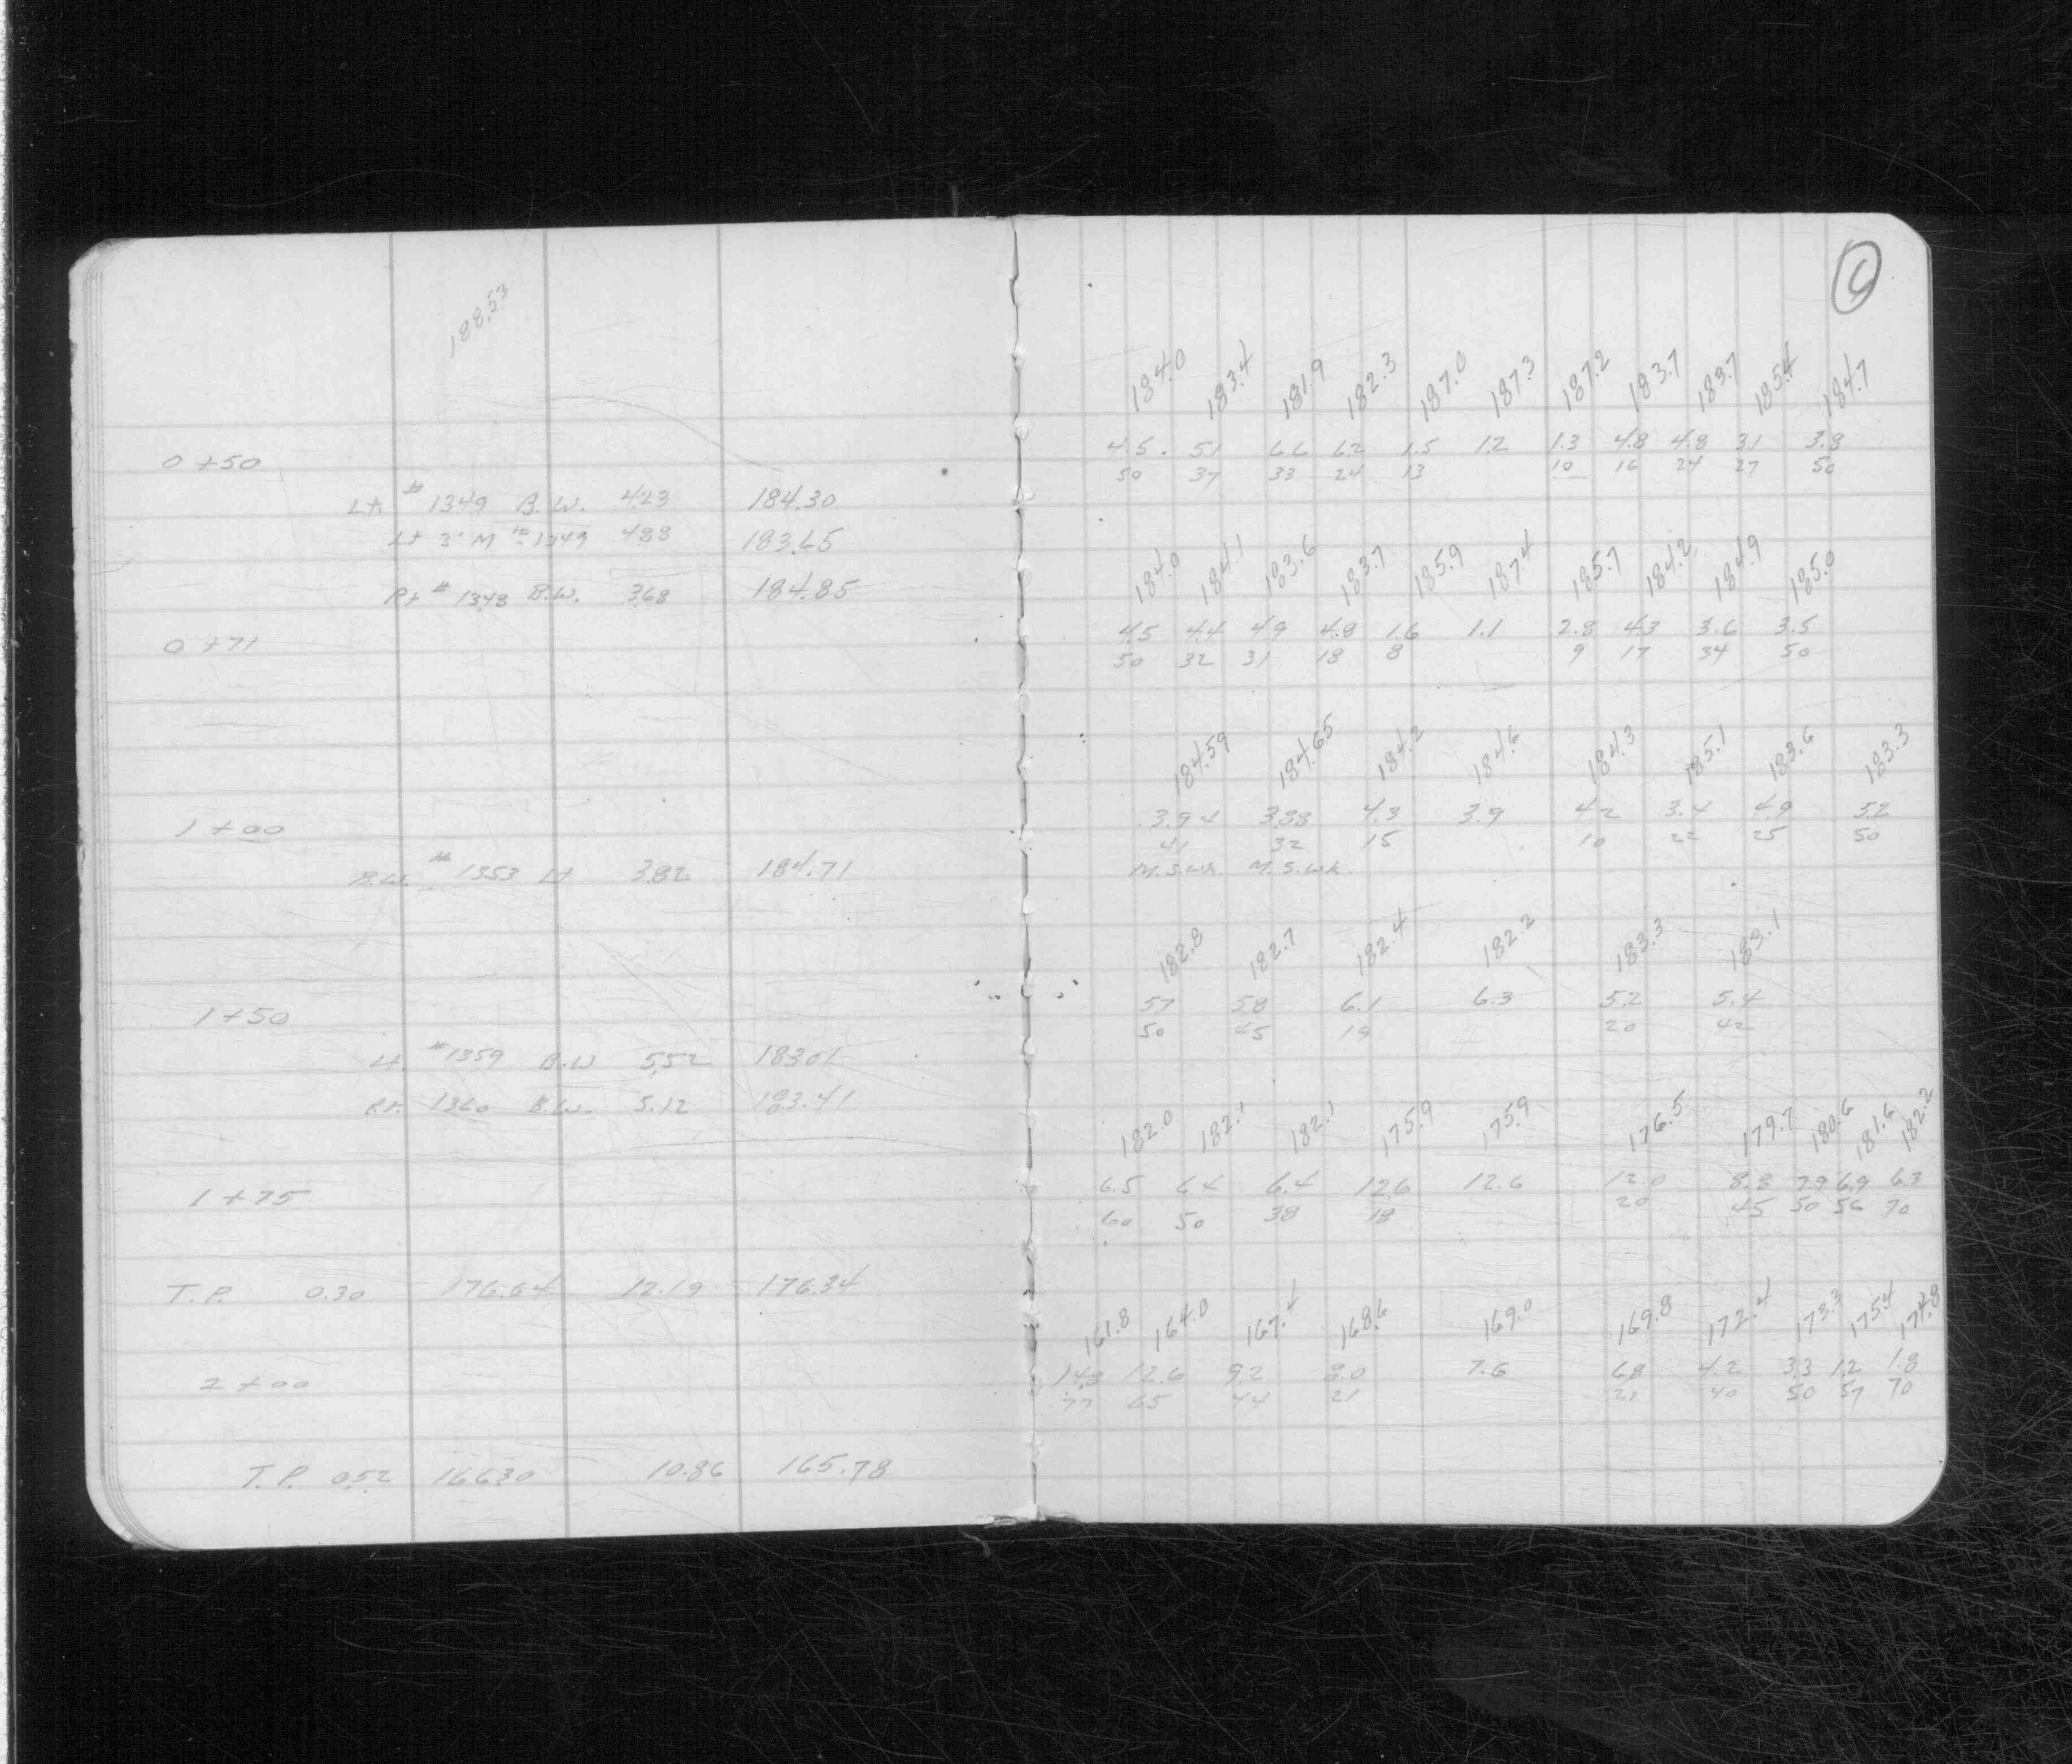 188.53
0+50
Lt. # 1349 B.W. 4.23 184.30
Lt 3' M # 1349 4.88 183.65
Rt # 1348 B.W. 3.68 184.85
0+71
1+00
B.W. # 1353 Lt 3.82 184.71
1+50
Lt. #1359 B.W 5.52 183.01
Rt. 1360 B.W. 5.12 183.41
1+75
T.P. 0.30 176.64 12.19 176.34
2+00
T.P. 0.52 166.30 10.86 165.78
184.0 183.4 181.9 182.3 187.0 187.3 187.2 183.7 183.7 185.4 184.7
4.5 5.1 6.6 6.2 1.5 1.2 1.3 4.8 4.8 3.1 3.8
50 37 33 24 13 10 16 24 27 50
184.0 184.1 183.6 183.7 185.9 187.4 185.7 184.2 184.9 185.0
4.5 4.4 4.9 4.8 1.6 1.1 2.8 4.3 3.6 3.5
50 32 31 18 8 9 17 34 50
184.59 184.65 184.2 184.6 184.3 185.1 183.6 183.3
3.94 3.88 4.3 3.9 4.2 3.4 4.9 5.2
41 32 15 10 22 25 50
M.S.Wk. M.S.Wk.
182.8 182.7 182.4 182.2 183.3 183.1
5.7 5.8 6.1 6.3 5.2 5.4
50 45 19 20 42
182.0 182.1 182.1 175.9 175.9 176.5 179.7 180.6 181.6 182.2
6.5 6.4 6.4 12.6 12.6 12.0 8.8 7.9 6.9 6.3
60 50 38 18 20 45 50 56 70
161.8 164.0 167.4 168.6 169.0 169.8 172.4 173.3 175.4 174.8
14.8 12.6 9.2 8.0 7.6 6.8 4.2 3.3 1.2 1.8
77 65 44 21 21 40 50 57 70